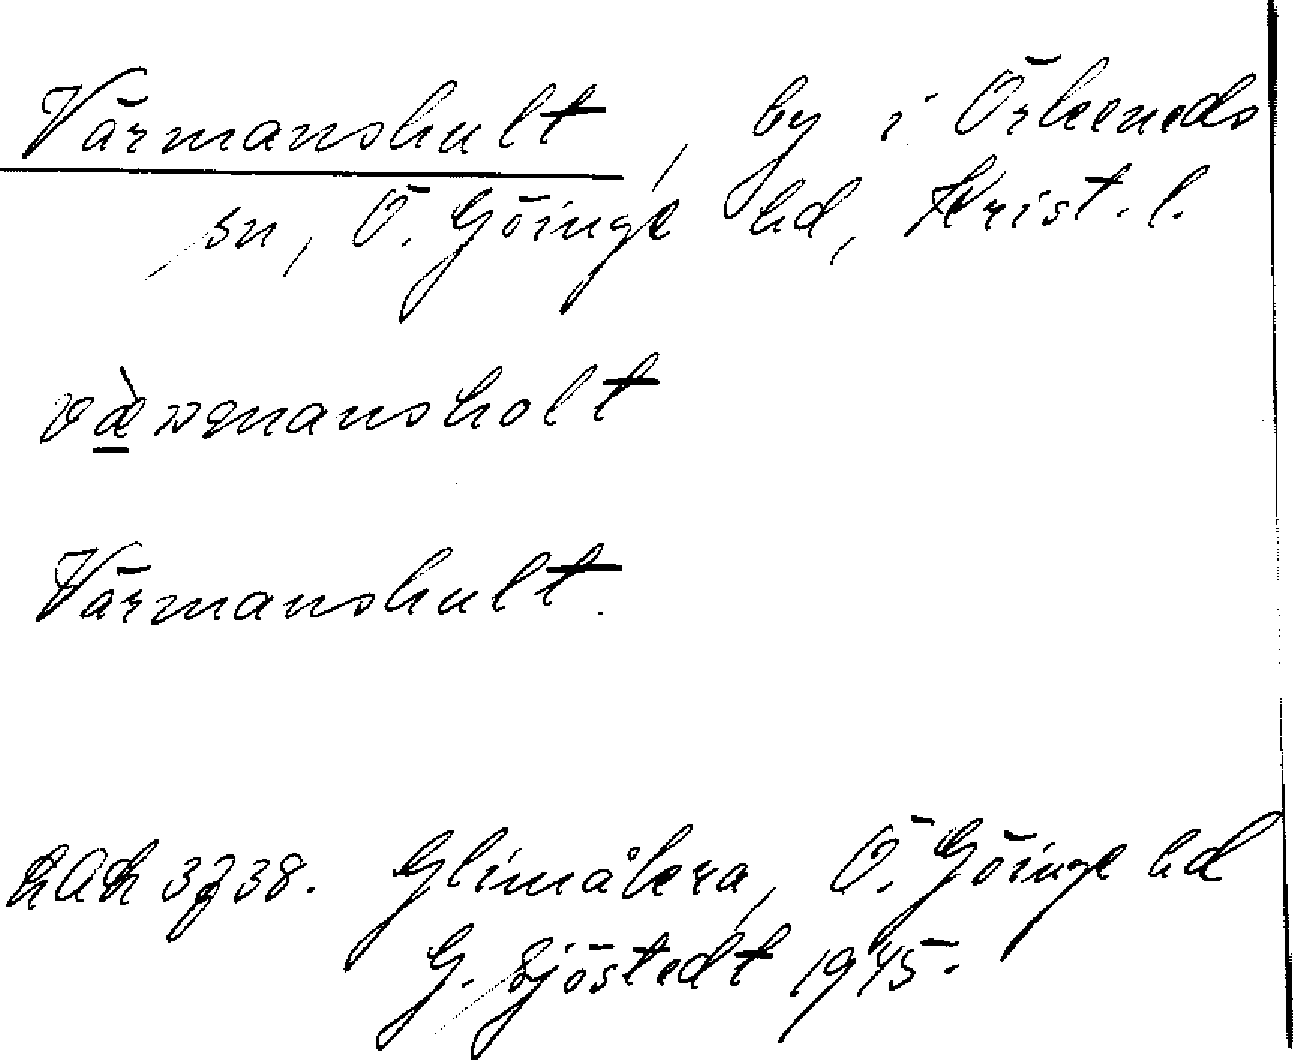 Värmanshult, by i Örkeneds
sn, Ö. Göinge hd, Krist. l.
Värmanshult.
3738. Glimåkra, Ö. Göinge hd
G. Sjöstedt 1945.